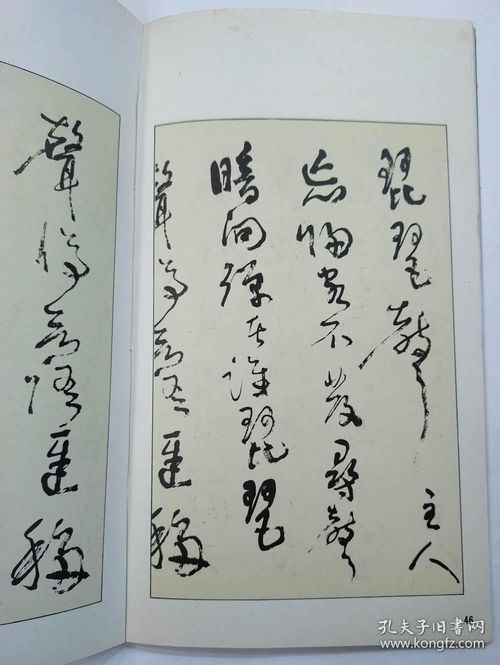 琵琶聲主人
忘歸客不發尋聲
暗問彈者誰琵琶
聲停欲語遲移
聲停欲語遲移
46
孔夫子旧书网
www.kongfz.com